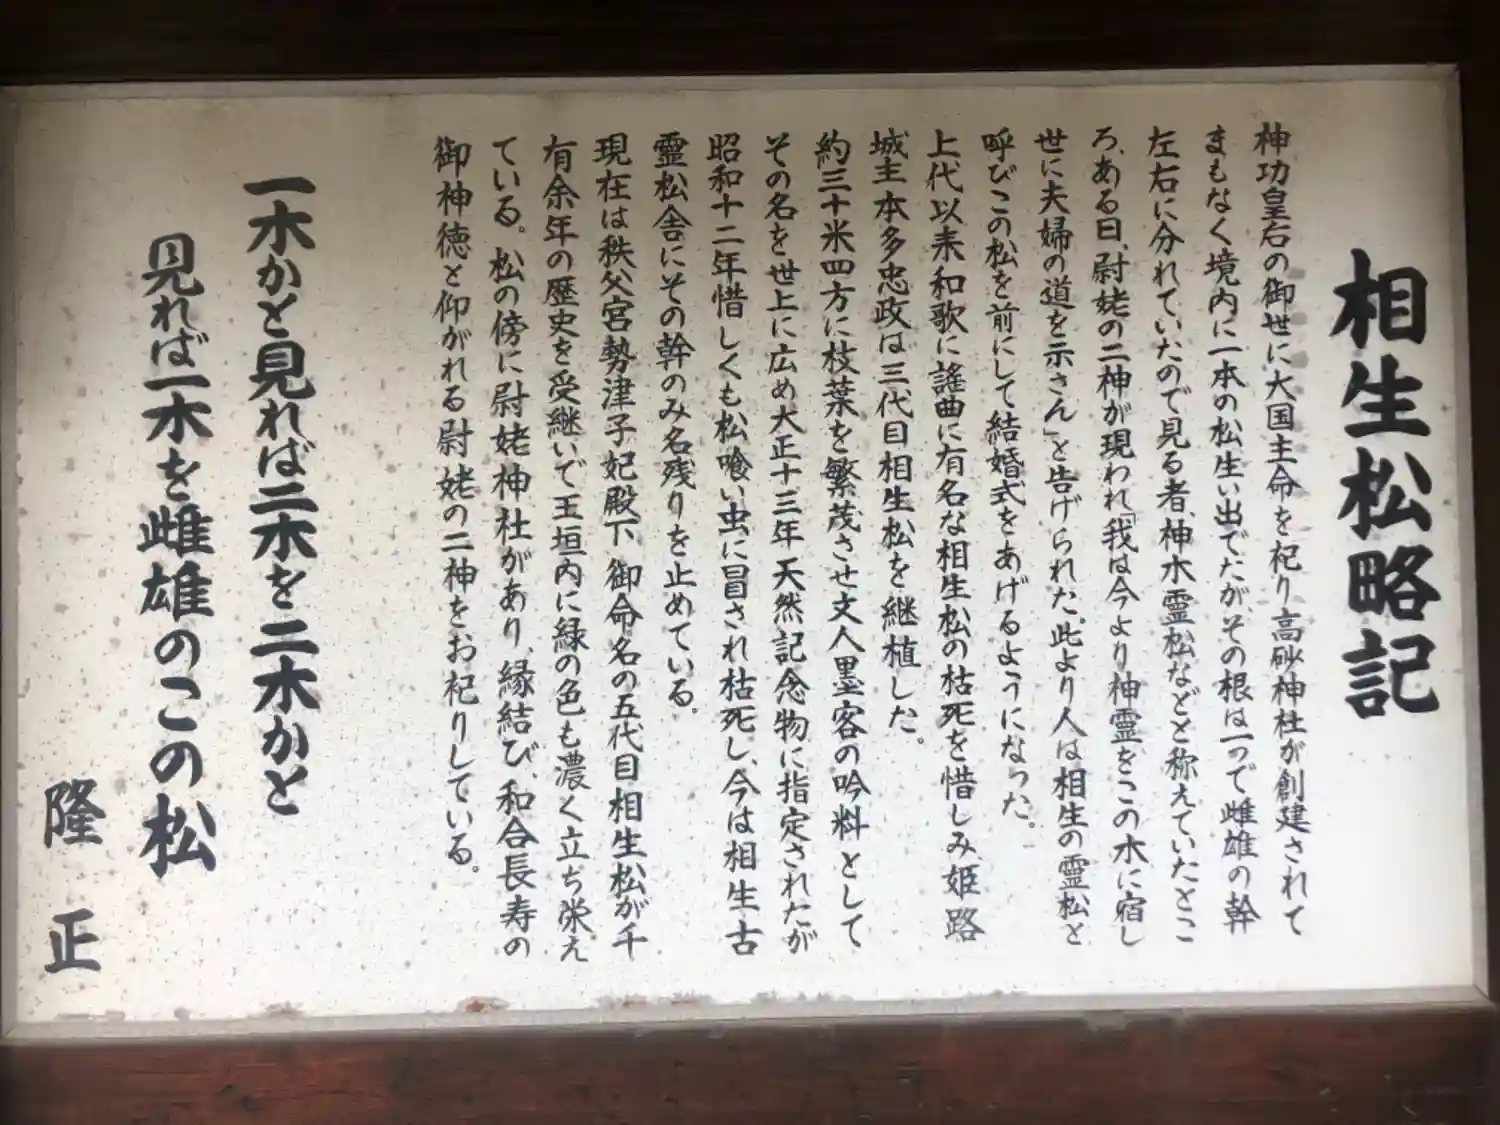 相生松略記
神功皇后の御世に大国主命を祀り高砂神社が創建されて
まもなく境内に一本の松生い出でたが、その根は一つで雌雄の幹
左右に分れていたので見る者、神木霊松などと称えていたとこ
ろ、ある日、尉姥の二神が現われ「我は今より神霊をこの木に宿し
世に夫婦の道を示さん」と告げられた。此より人は相生の霊松と
呼びこの松を前にして結婚式をあげるようになった。
上代以来和歌に謡曲に有名な相生松の枯死を惜しみ姫路
城主本多忠政は三代目相生松を継植した。
約三十米四方に枝葉を繁茂させ文人墨客の吟料として
その名を世上に広め大正十三年天然記念物に指定されたが
昭和十二年惜しくも松喰い虫に冒され枯死し、今は相生古
霊松舎にその幹のみ名残りを止めている。
現在は秩父宮勢津子妃殿下御命名の五代目相生松が千
有余年の歴史を受継いで玉垣内に緑の色も濃く立ち栄え
ている。松の傍に尉姥神社があり、縁結び、和合長寿の
御神徳と仰がれる尉姥の二神をお祀りしている。
一木かと見れば二木を二木かと
見れば一木を雌雄のこの松
隆正